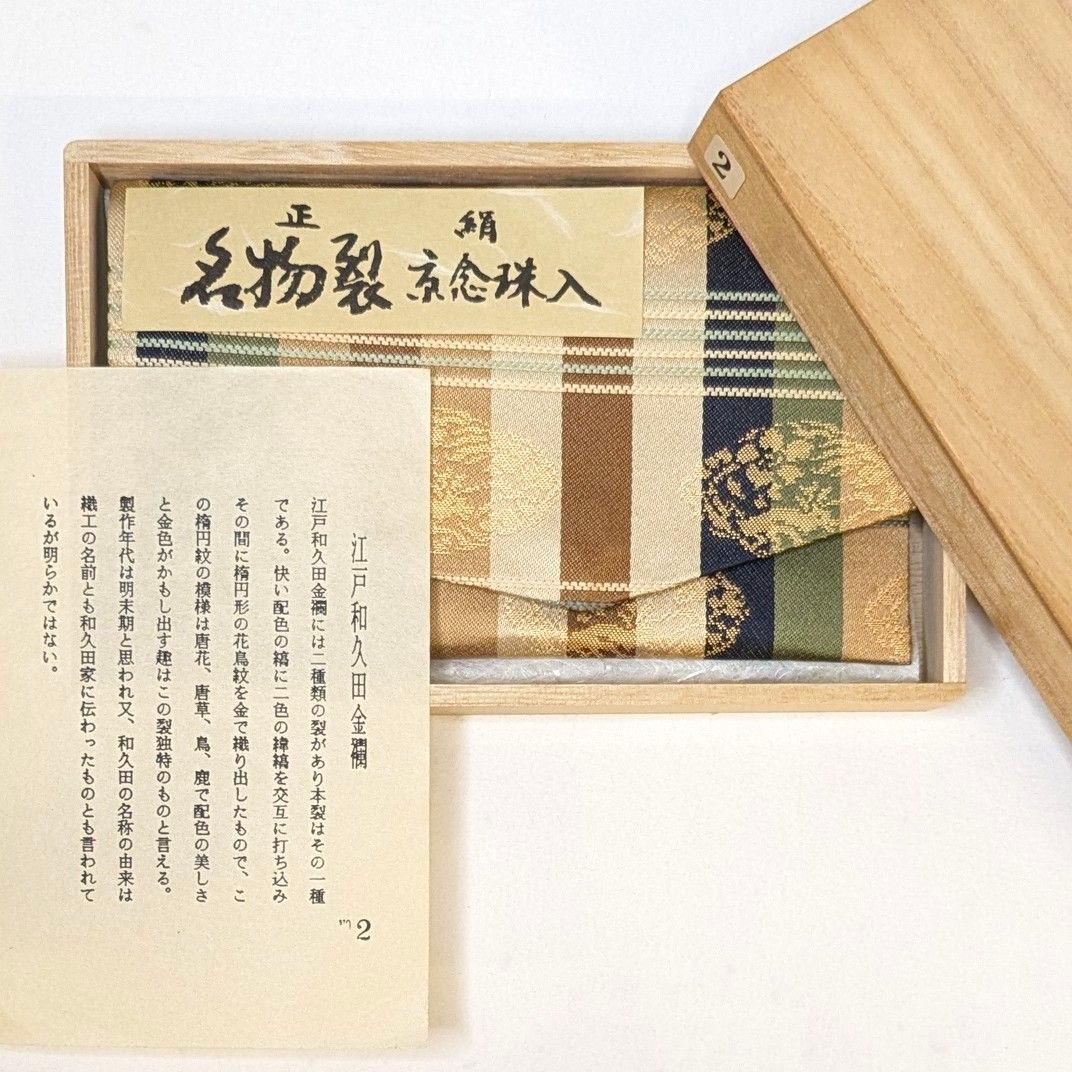 正絹
名物裂 京念珠入
2
江戸和久田金襴
江戸和久田金襴には二種類の裂があり本裂はその一種
である。快い配色の縞に二色の緯縞を交互に打ち込み
その間に楕円形の花鳥紋を金で織り出したもので、こ
の楕円紋の模様は唐花、唐草、鳥、鹿で配色の美しさ
と金色がかもし出す趣はこの裂独特のものと言える。
製作年代は明末期と思われ又、和久田の名称の由来は
織工の名前とも和久田家に伝わったものとも言われて
いるが明らかではない。
2